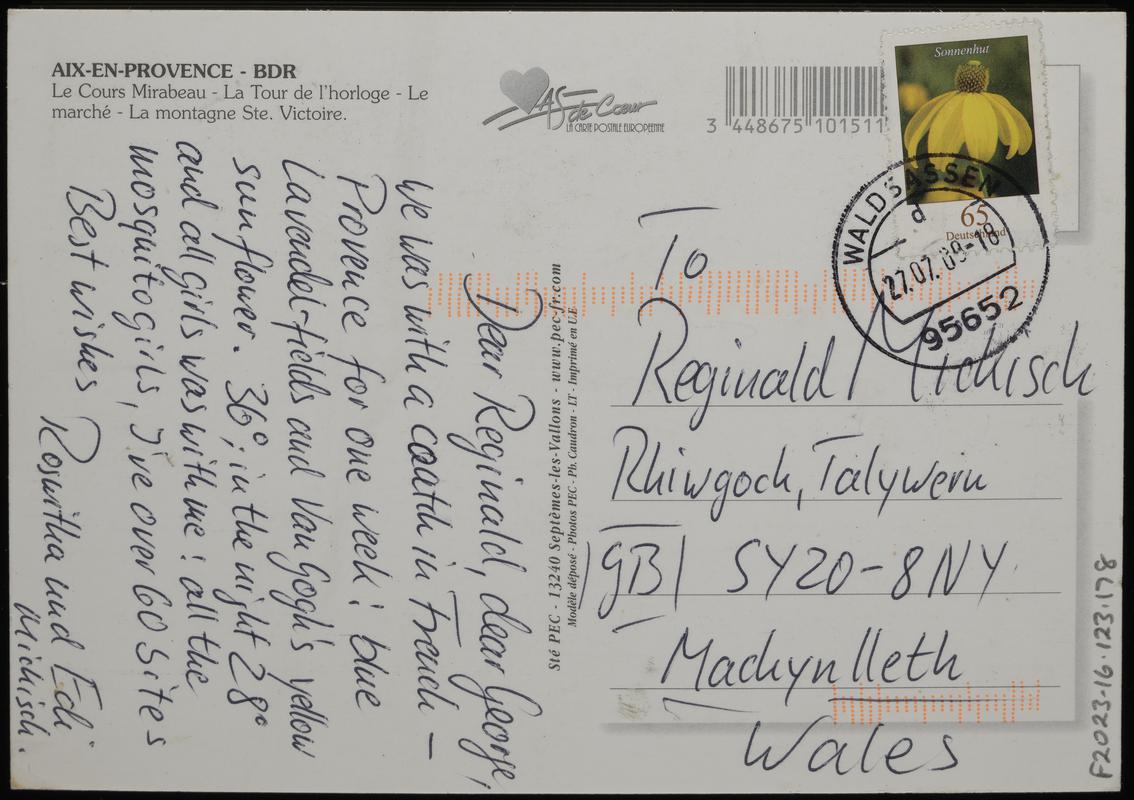 AIX-EN-PROVENCE - BDR
Le Cours Mirabeau - La Tour de l'horloge - Le
marché - La montagne Ste. Victoire.
AS de Cœur
LA CARTE POSTALE EUROPÉENNE
3 448675 101511
Sonnenhut
65
Deutschland
WALDSASSEN
d
27.07.09-18
95652
Dear Reginald, dear George,
we was with a coath in French –
Provence for one week: blue
Lavendel-fields and Van Gogh's yellow
sunflower. 36°, in the night 28°
and all girls was with me: all the
mosquito girls, I've over 60 sites
Best wishes Roswitha und Edi
Michisch.
Sté PEC - 13240 Septèmes-les-Vallons - www.pec-fr.com
Modèle déposé - Photos PEC - Ph. Caudron - LT - Imprimé en U.E.
To
Reginald Michisch
Rhiwgoch, Talywern
GB SY20-8NY
Machynlleth
Wales
F2023-16-123-178